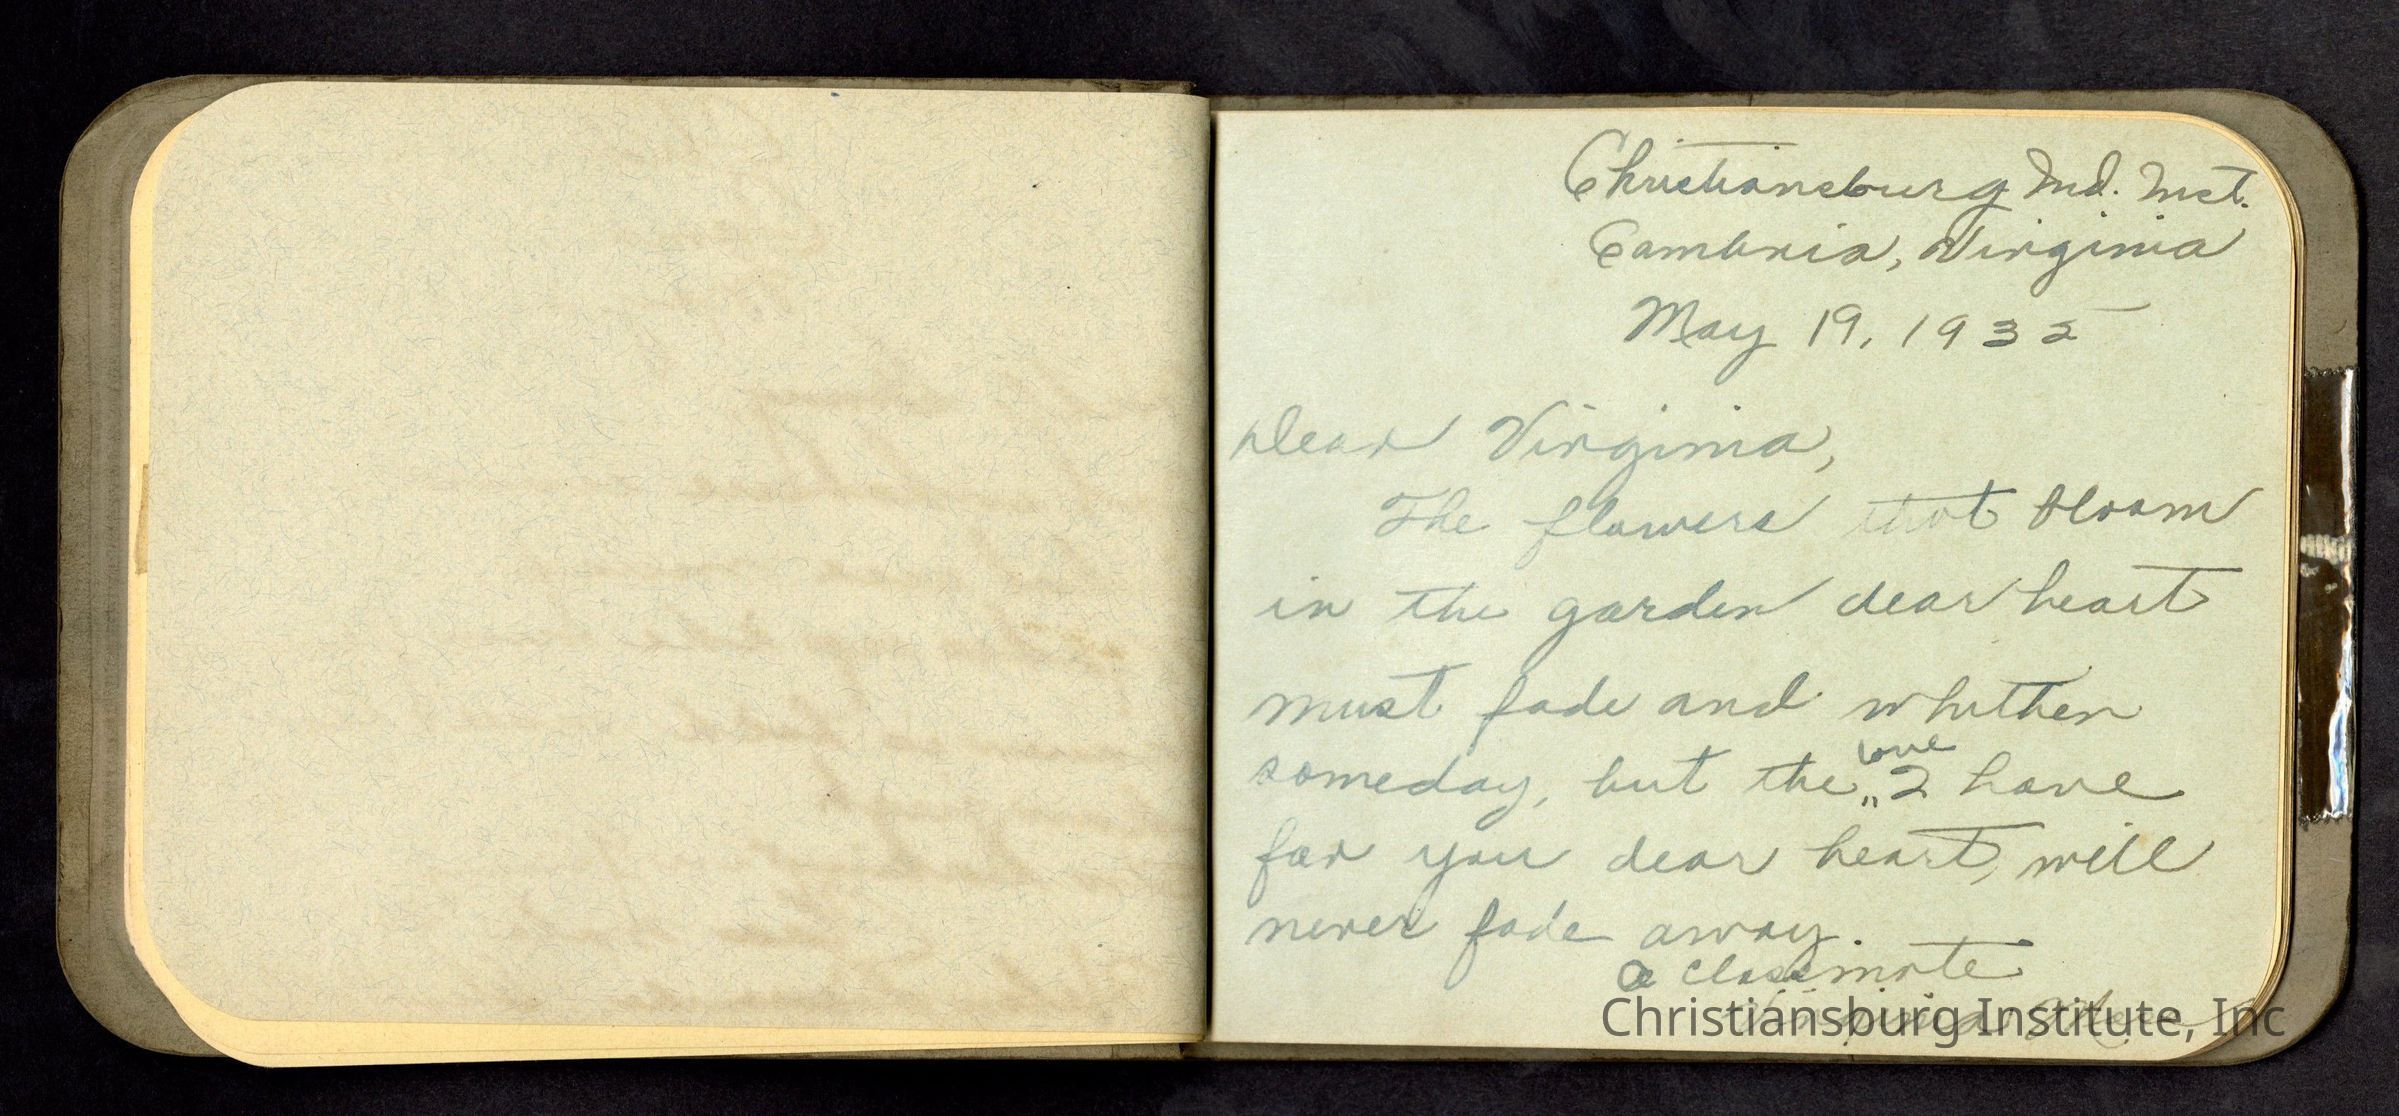 Christiansburg Ind. Inst.
Cambria, Virginia
May 19, 1935
Dear Virginia,
The flowers that bloom
in the garden dear heart
must fade and whither
love
someday, but the „ I have
for you dear heart, will
never fade away.
a classmate
Virginia
Christiansburg Institute, Inc